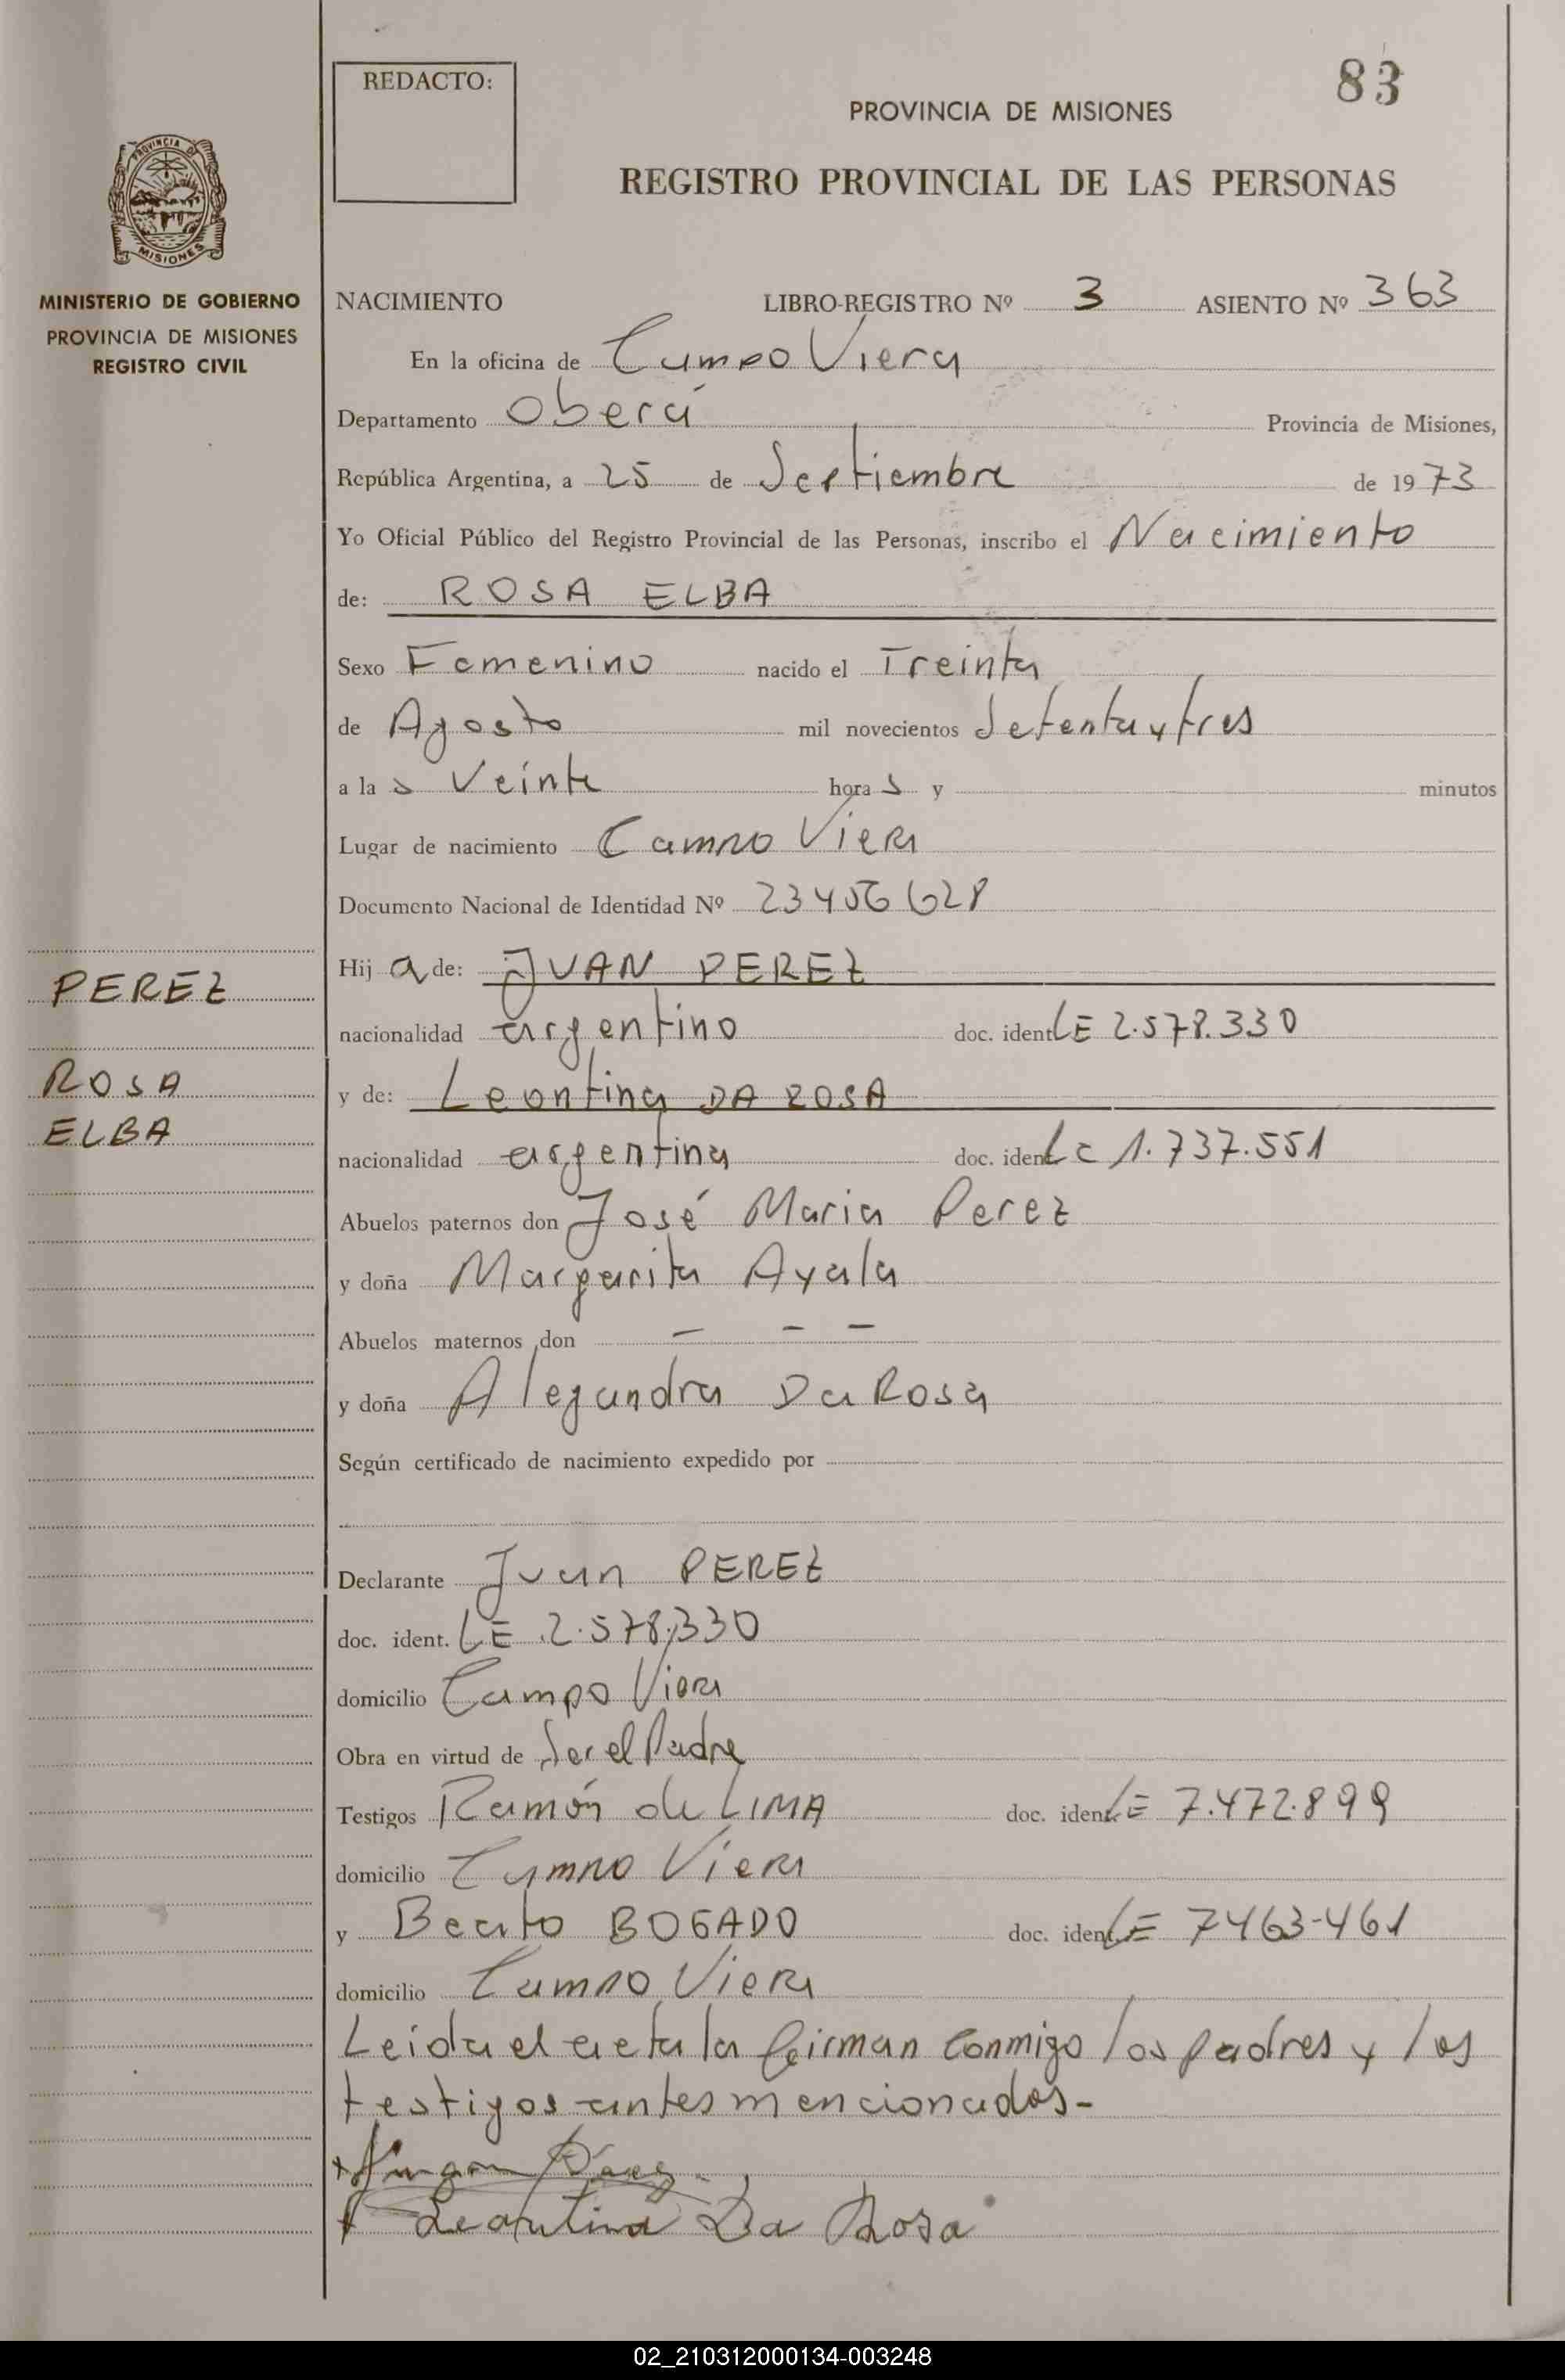 REDACTO:
83
PROVINCIA DE MISIONES
REGISTRO PROVINCIAL DE LAS PERSONAS
PROVINCIA DE
MISIONES
MINISTERIO DE GOBIERNO
PROVINCIA DE MISIONES
REGISTRO CIVIL
NACIMIENTO LIBRO-REGISTRO Nº 3 ASIENTO Nº 363
En la oficina de Campo Viera
Departamento Oberá Provincia de Misiones,
República Argentina, a 25 de Septiembre de 1973
Yo Oficial Público del Registro Provincial de las Personas, inscribo el Nacimiento
de: ROSA ELBA
Sexo Femenino nacido el Treinta
de Agosto mil novecientos Setenta y tres
a las Veinte horas y minutos
Lugar de nacimiento Campo Viera
Documento Nacional de Identidad Nº 23456628
Hija de: JUAN PEREZ
PEREZ
nacionalidad argentino doc. ident LE 2.578.330
ROSA
y de: Leontina DA ROSA
ELBA
nacionalidad argentina doc. ident LC 1.737.551
Abuelos paternos don José Maria Perez
y doña Margarita Ayala
Abuelos maternos don — — —
y doña Alejandra Da Rosa
Según certificado de nacimiento expedido por
Declarante Juan PEREZ
doc. ident. LE 2.578.330
domicilio Campo Viera
Obra en virtud de Ser el Padre
Testigos Ramón de LIMA doc. ident LE 7.472.899
domicilio Campo Viera
y Beato BOGADO doc. ident LE 7463-461
domicilio Campo Viera
Leida el acta la firman conmigo los padres y los
testigos antes mencionados-
Leontina Da Rosa
02_210312000134-003248